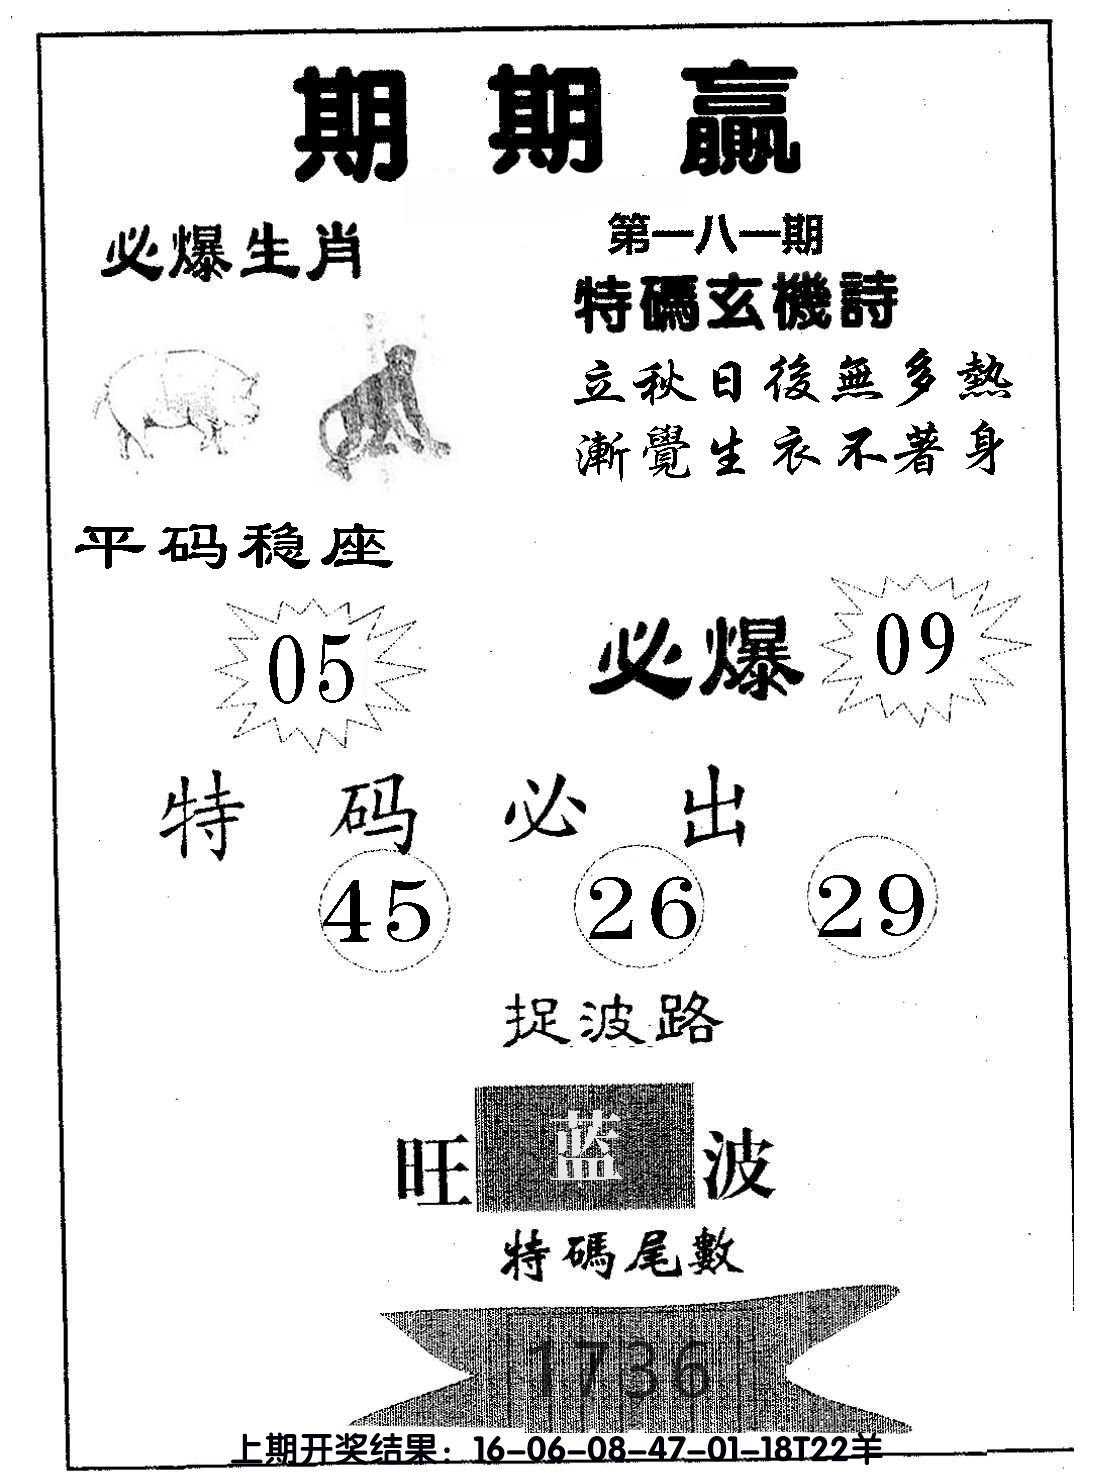 期期赢
必爆生肖
第一八一期
特碼玄機詩
立秋日後無多熱
漸覺生衣不著身
平码稳座
05
必爆 09
特码必出
45 26 29
捉波路
旺蓝波
特碼尾數
1736
上期开奖结果：16-06-08-47-01-18T22羊